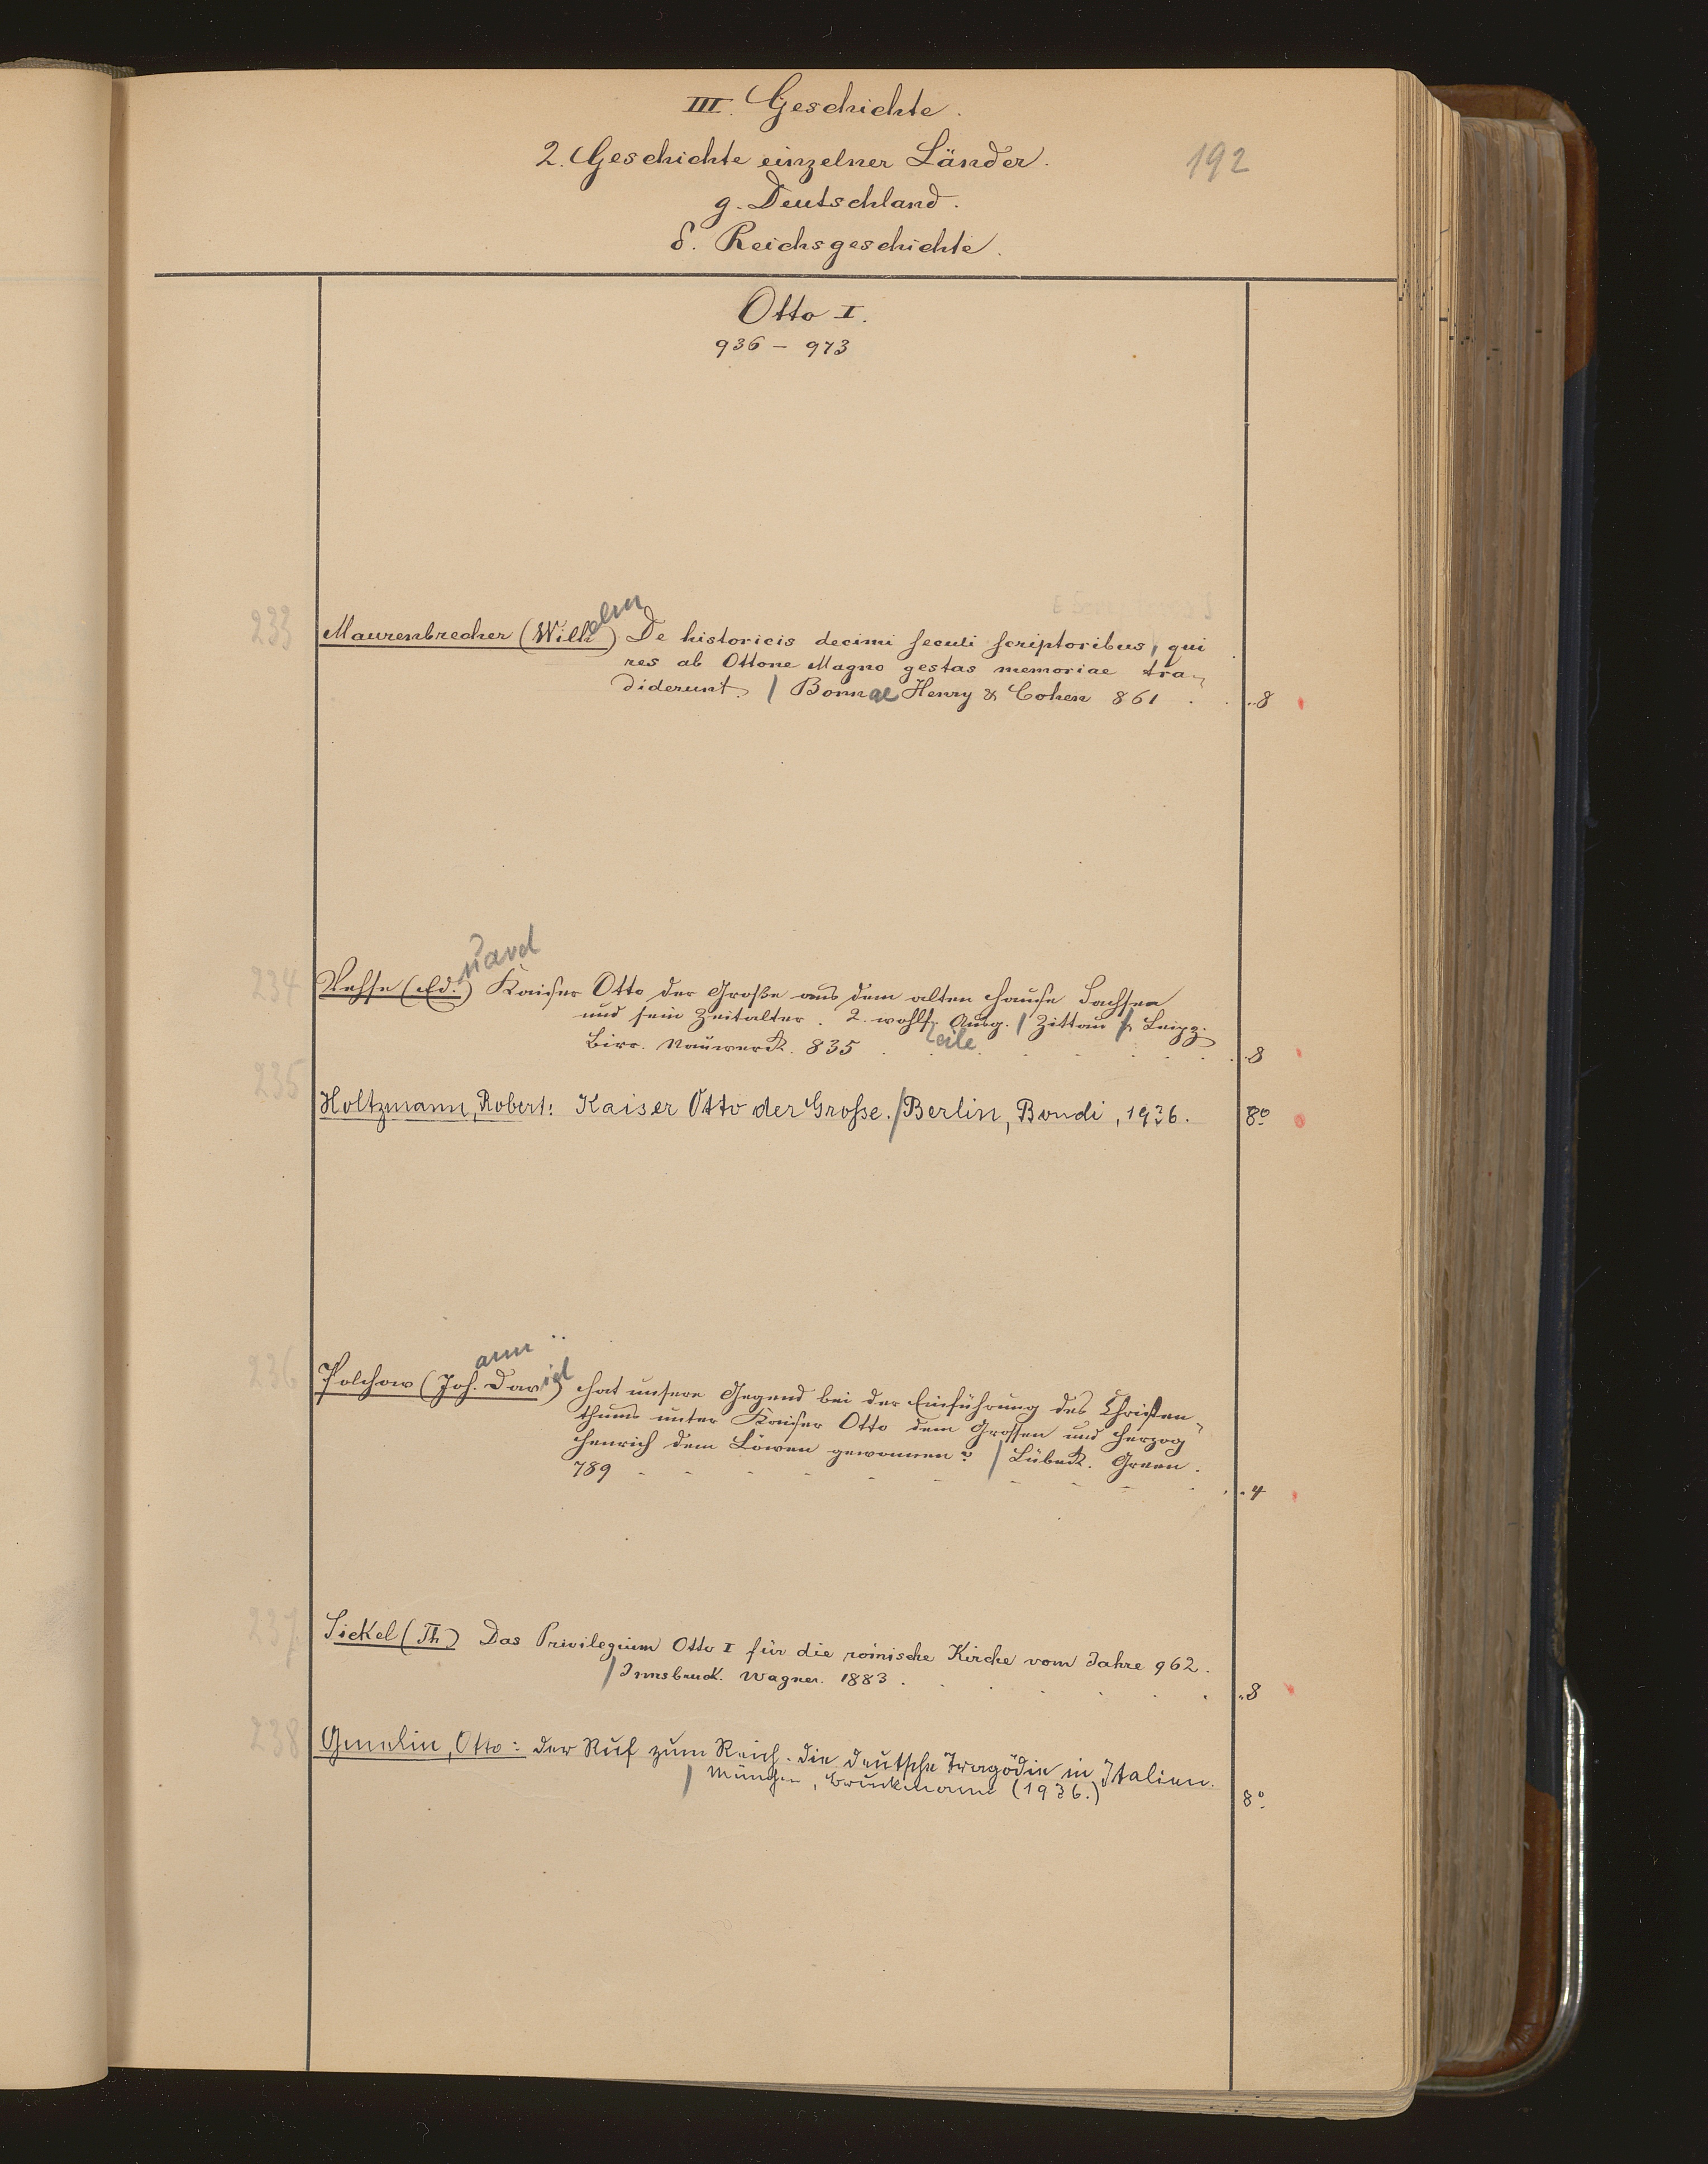 III. Geschichte.
2. Geschichte einzelner Länder.
192
g. Deutschland.
δ. Reichsgeschichte.
Otto I.
936 – 973
233 Maurenbrecher (Wilhelm) De historicis decimi seculi scriptoribus, qui
res ab Ottone Magno gestas memoriae tra-
diderunt. / Bonnae Henry & Cohen 861 . . . 8
234 Vehse (Eduard) Kaiser Otto der Große aus dem alten Hause Sachsen
und sein Zeitalter. 2. wohlf. Ausg. / Zittau & Leipz.
Birr. Nauwerck. 835 . . . 8
235 Holtzmann, Robert: Kaiser Otto der Große. / Berlin, Bondi, 1936. 8º
236 Polchow (Johann David) Hat unsere Gegend bei der Einführung des Christen-
thums unter Kaiser Otto dem Grossen und Herzog
Henrich dem Löwen gewonnen? / Lübeck. Green.
789 . . . 4
237 Sickel (Th) Das Privilegium Otto I für die römische Kirche vom Jahre 962.
/ Innsbruck. Wagner. 1883 . . . 8
238 Gmelin, Otto: Der Ruf zum Reich. Die deutsche Tragödie in Italien.
/ München, Bruckmann (1936.) 8º